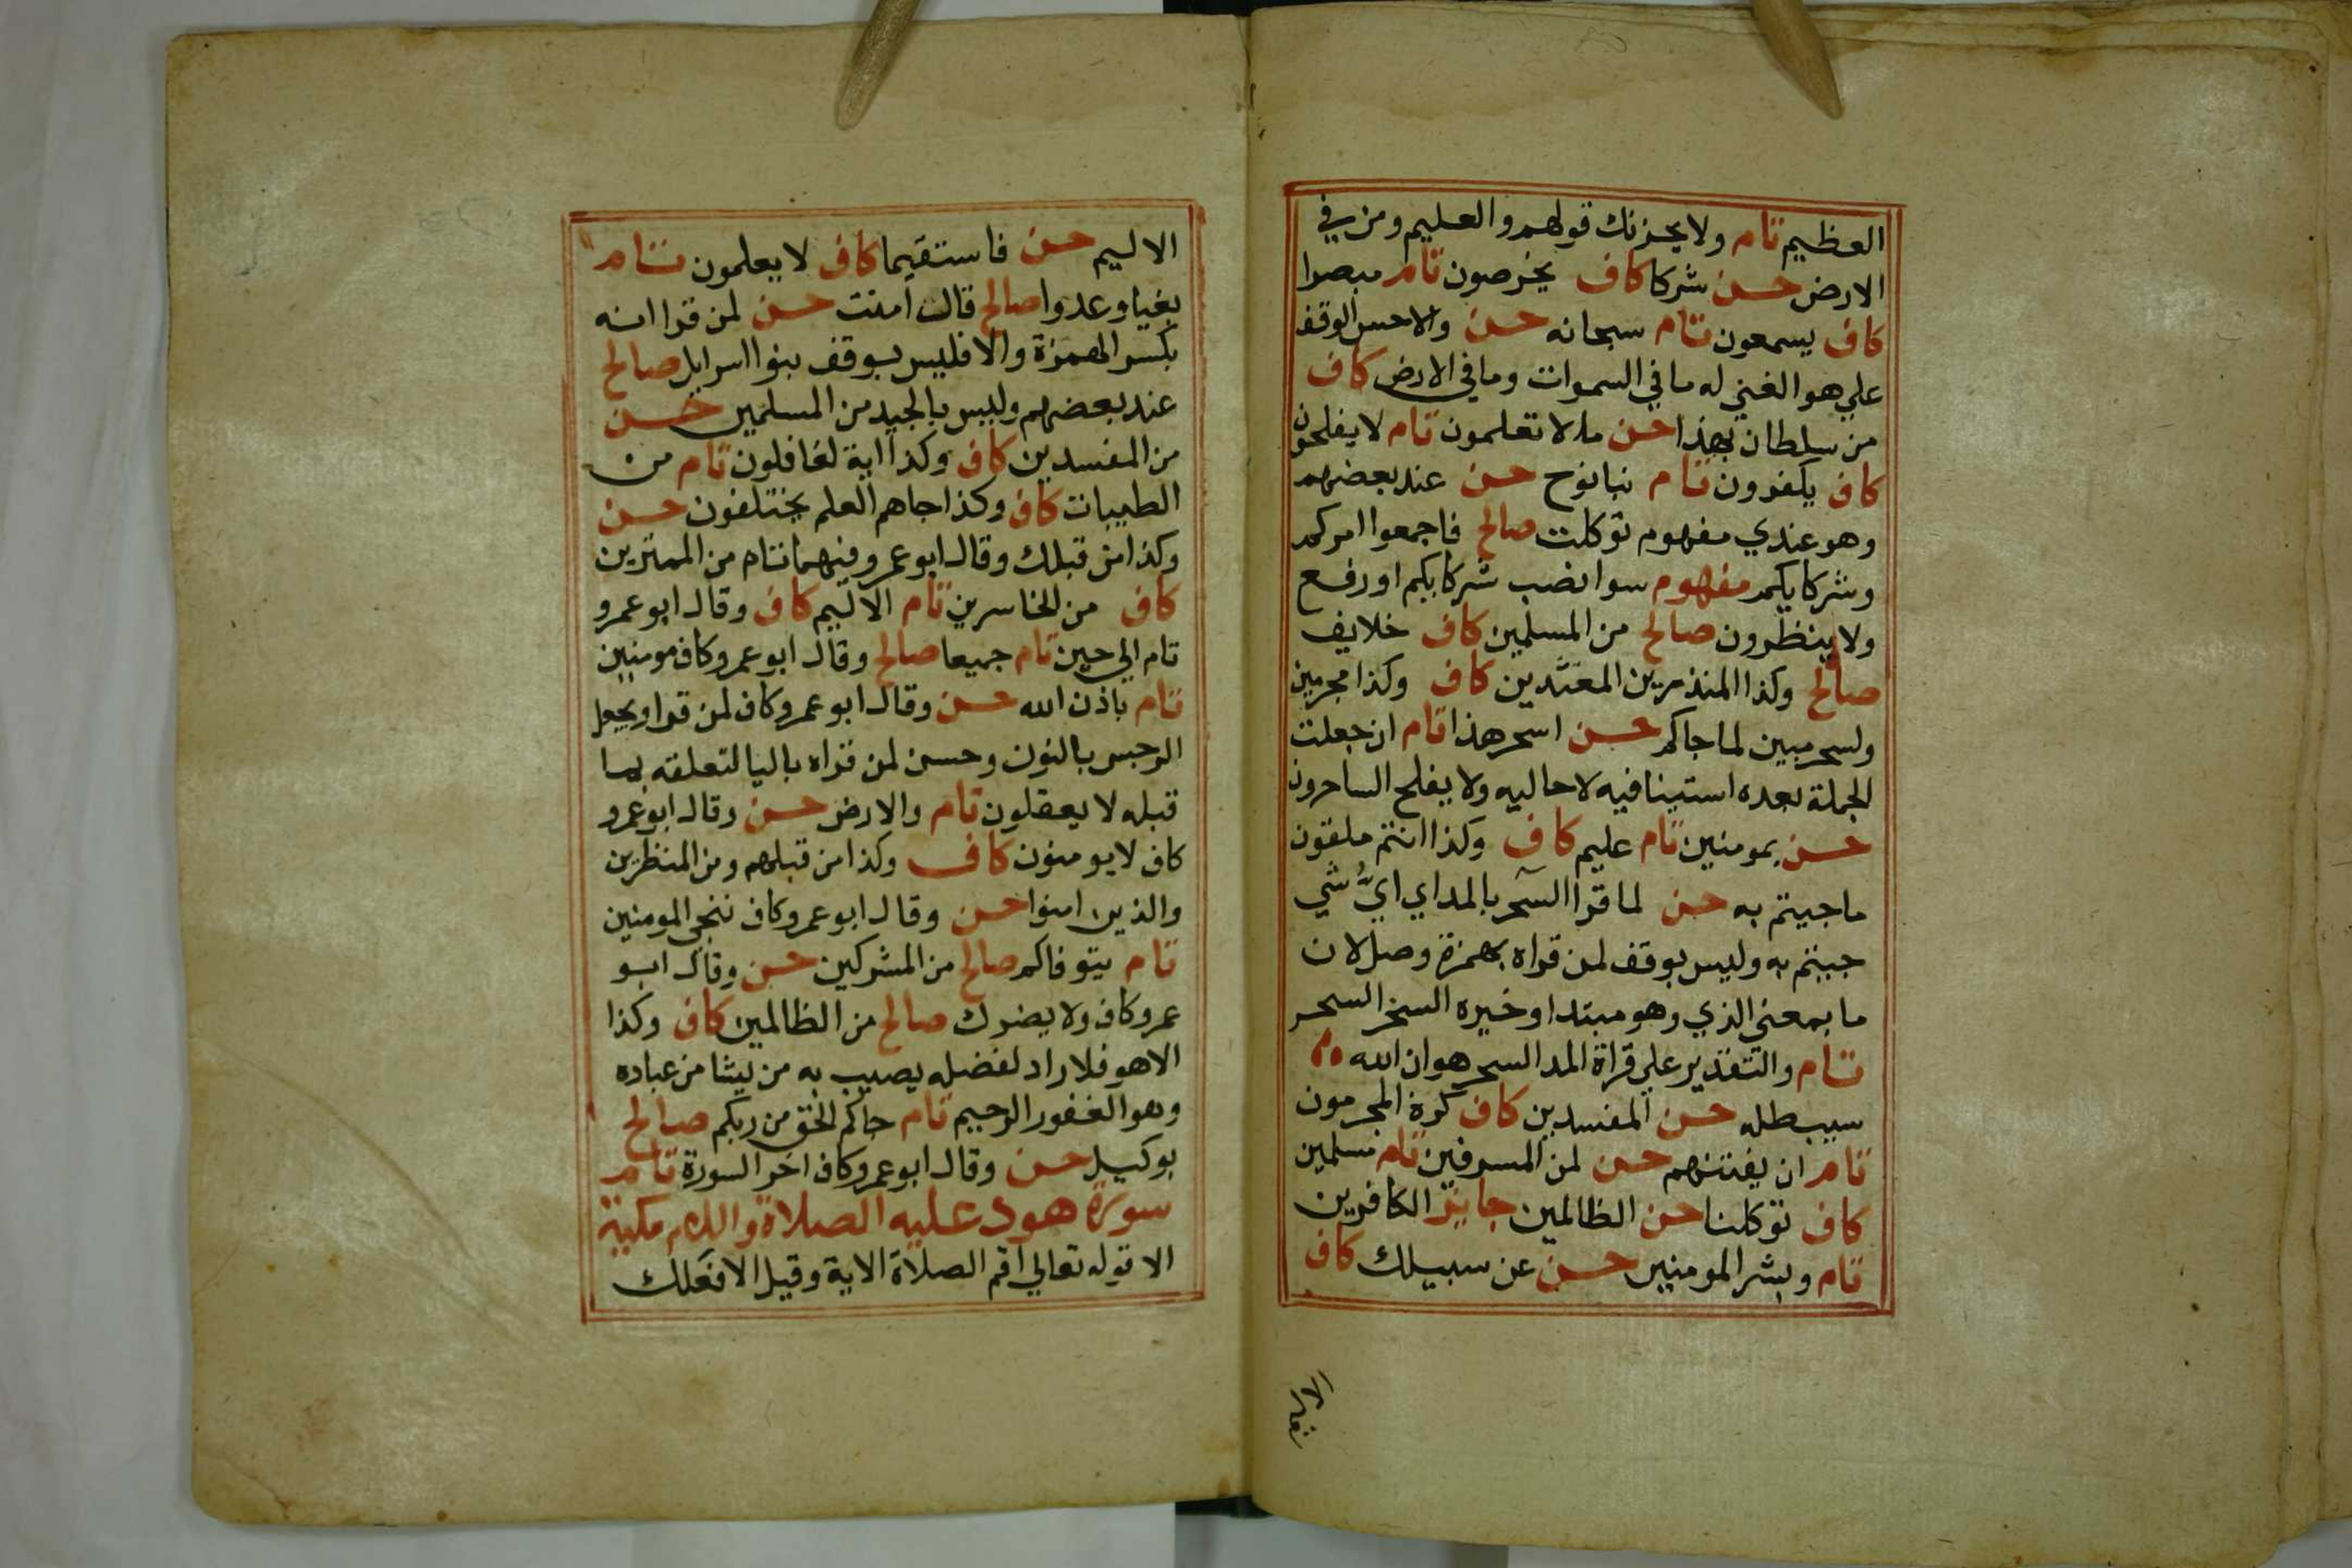 العظيم تام ولا يحزنك قولهم والعليم ومن في
الارض حسن شركا كاف يخرصون تام مبصرا
كاف يسمعون تام سبحانه حسن والاحسن الوقف
علي هو الغني له ما في السموات وما في الارض كاف
من سلطان بهذا حسن ما لا تعلمون تام لا يفلحون
كاف يكفرون تام نبا نوح حسن عند بعضهم
وهو عندي مفهوم توكلت صالح فاجمعوا امركم
وشركايكم مفهوم سوا نصب شركايكم او رفع
ولا ينظرون صالح من المسلمين كاف خلايف
صالح وكذا المنذرين المعتدين كاف وكذا مجرمين
ولسحر مبين لما جاكم حسن اسحر هذا تام ان جعلت
الجملة بعده استينافيه لا حاليه ولا يفلح الساحرون
حسن بمومنين تام عليم كاف وكذا انتم ملقون
ما جيتم به حسن لما قرا السحر بالمد اي ايُّ شي
جيتم به وليس بوقف لمن قراه بهمزة وصل لان
ما بمعني الذي وهو مبتدا وخبره السحر السحر
تام والتقدير علي قراة المد السحر هو ان الله
سيبطله حسن المفسدين كاف كره المجرمون
تام ان يفتنهم حسن لمن المسرفين تام مسلمين
كاف توكلنا حسن الظالمين جايز الكافرين
تام وبشر المومنين حسن عن سبيلك كاف
الاليم حسن فاستقيما كاف لا يعلمون تام
بغيا وعدوا صالح قال امنت حسن لمن قرا انه
بكسر الهمزة والا فليس بوقف بنوا اسرايل صالح
عند بعضهم وليس بالجيد من المسلمين حسن
من المفسدين كاف وكذا اية لغافلون تام من
الطيبات كاف وكذا جاهم العلم يختلفون حسن
وكذا من قبلك وقال ابو عمرو فيهما تام من الممترين
كاف من الخاسرين تام الاليم كاف وقال ابو عمرو
تام الي حين تام جميعا صالح وقال ابو عمرو كاف مومنين
تام باذن الله حسن وقال ابو عمرو كاف لمن قرا ويجعل
الرجس بالنون وحسن لمن قراه باليا لتعلقه بما
قبله لا يعقلون تام والارض حسن وقال ابو عمرو
كاف لا يومنون كاف وكذا من قبلهم ومن المنتظرين
والذين امنوا حسن وقال ابو عمرو كاف ننجي المومنين
تام يتوفاكم صالح من المشركين حسن وقال ابو
عمرو كاف ولا يضرك صالح من الظالمين كاف وكذا
الا هو فلا راد لفضله يصيب به من يشا من عباده
وهو الغفور الرحيم تام جاكم الحق من ربكم صالح
بوكيل حسن وقال ابو عمرو كاف اخر السورة تام
سورة هود عليه الصلاة والسلام مكية
الا قوله تعالي اقم الصلاة الاية وقيل الا فلعلك